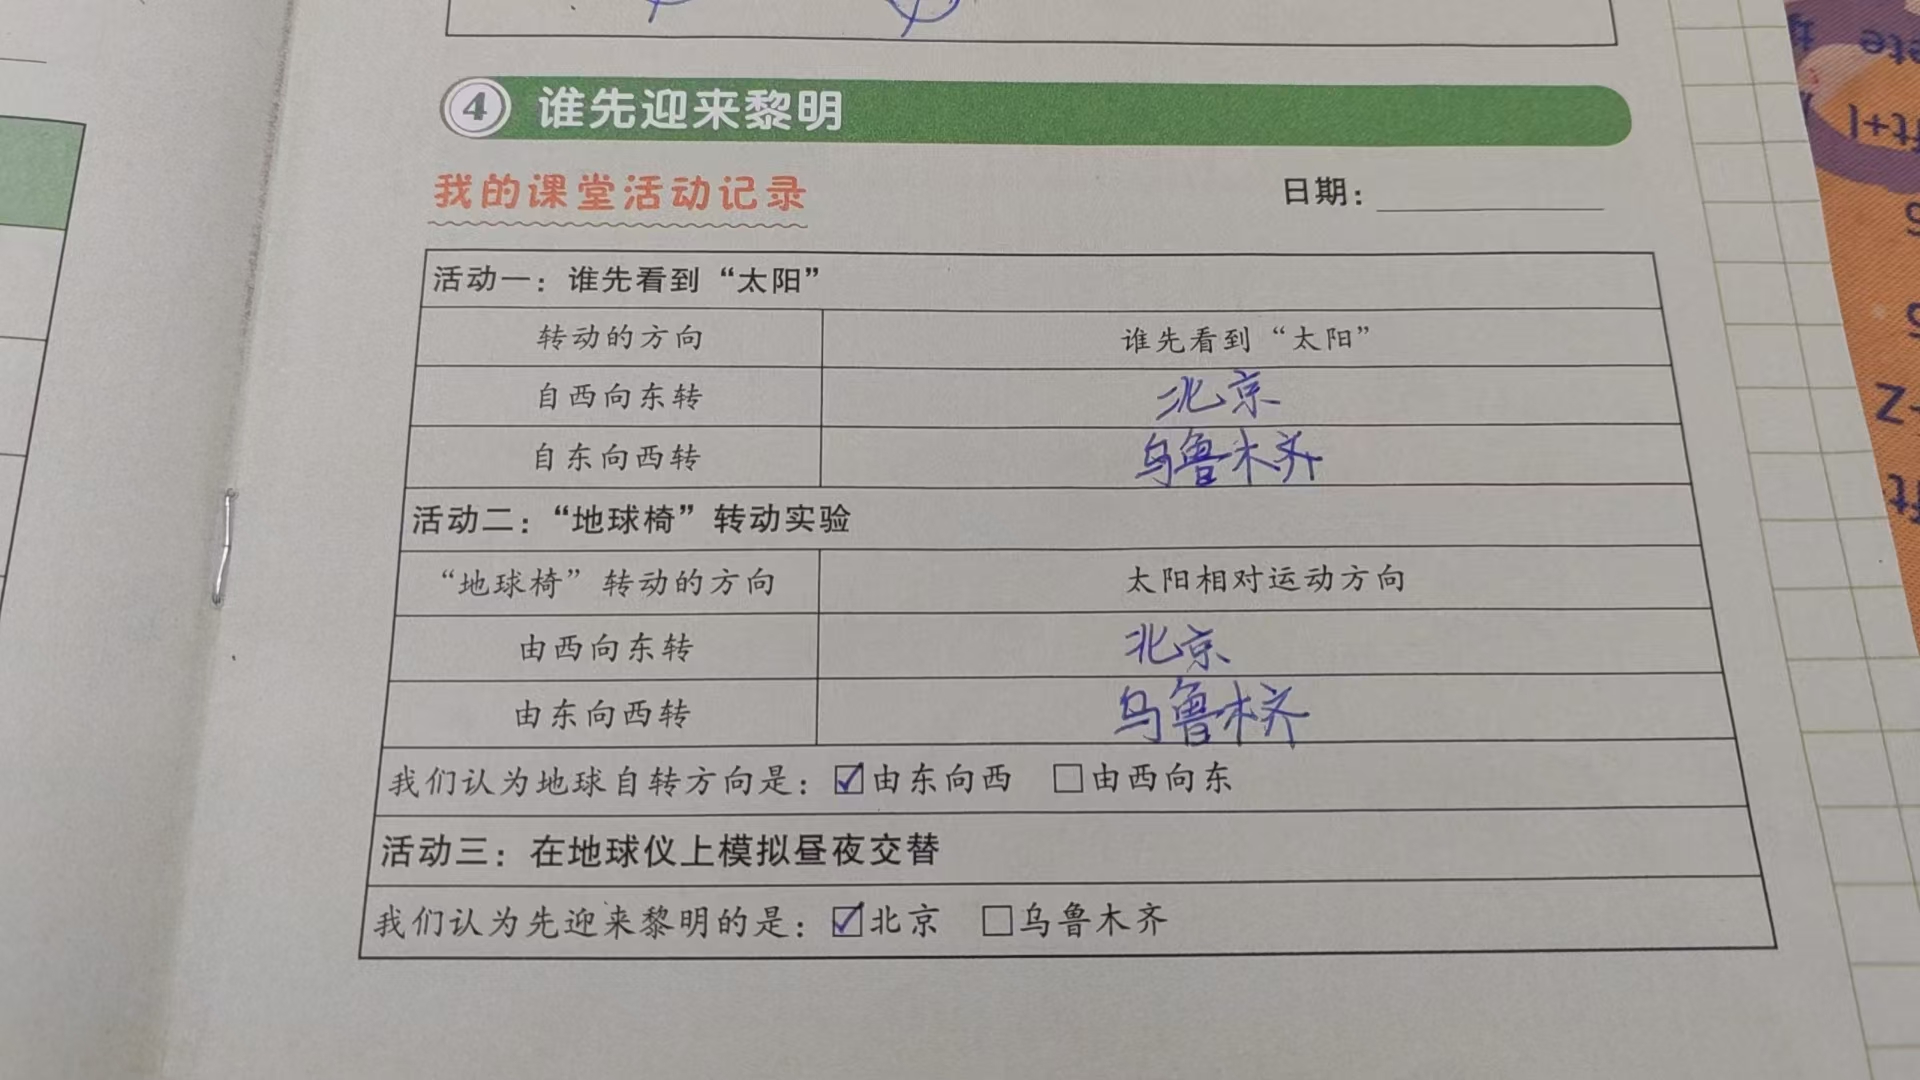 4 谁先迎来黎明
我的课堂活动记录 日期：
活动一：谁先看到“太阳”
转动的方向 谁先看到“太阳”
自西向东转 北京
自东向西转 乌鲁木齐
活动二：“地球椅”转动实验
“地球椅”转动的方向 太阳相对运动方向
由西向东转 北京
由东向西转 乌鲁木齐
我们认为地球自转方向是：☑由东向西 □由西向东
活动三：在地球仪上模拟昼夜交替
我们认为先迎来黎明的是：☑北京 □乌鲁木齐